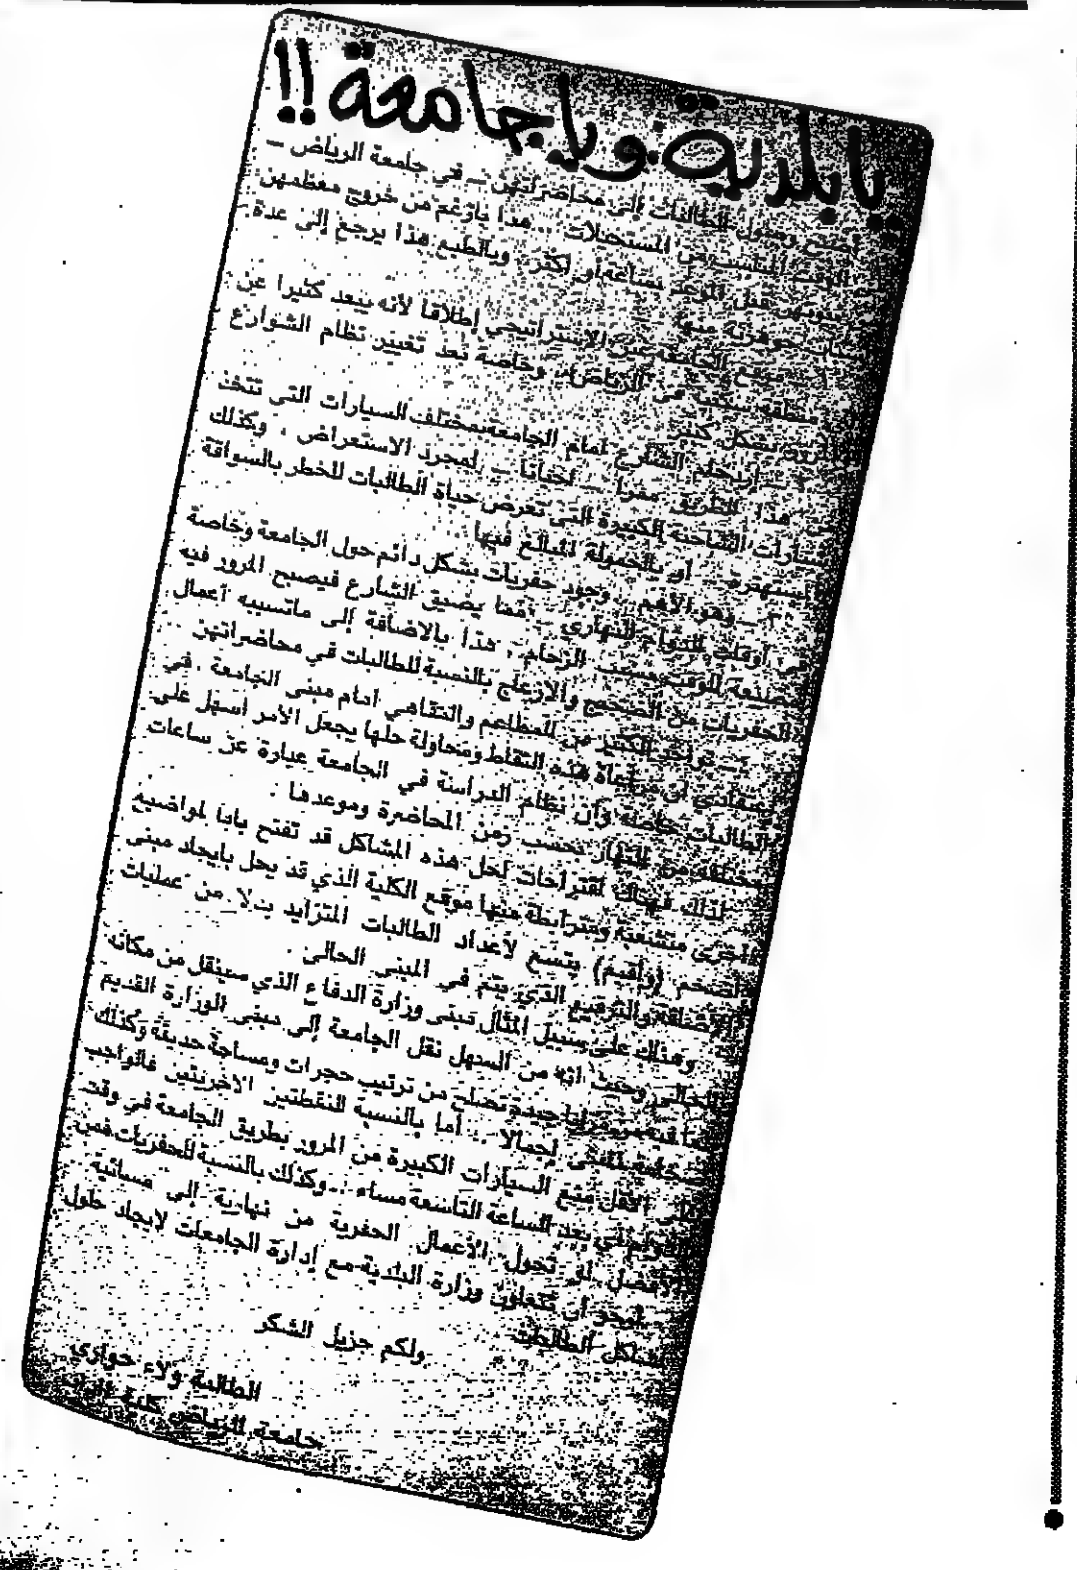 يا بلدية ويا جامعة !!
أصبح وصول الطالبات إلى محاضراتهن ـ في جامعة الرياض ـ
الوقت المناسب من المستحيلات .. هذا بالرغم من خروج معظمهن
بيوتهن قبل الموعد بساعة أو أكثر .. وبالطبع هذا يرجع إلى عدة
أسباب جوهرية منها :
١ ـ موقع الجامعة غير الاستراتيجي إطلاقا لأنه يبعد كثيرا عن
منطقة سكنية في الرياض .. وخاصة بعد تغيير نظام الشوارع
المرور بشكل كبير
٢ ـ ازدحام الشارع أمام الجامعة بمختلف السيارات التي تتخذ
من هذا الطريق مقرا ـ أحيانا ـ لمجرد الاستعراض . وكذلك
سيارات الشاحنة الكبيرة التي تعرض حياة الطالبات للخطر بالسواقة
المستهترة ـ أو بالحمولة المبالغ فيها ..
٣ ـ وهو الأهم .. وجود حفريات بشكل دائم حول الجامعة وخاصة
في أوقات الدوام النهاري ـ مما يضيق الشارع فيصبح المرور فيه
مضيعة للوقت بسبب الزحام .. هذا بالاضافة إلى ماتسببه أعمال
الحفريات من الضجيج والازعاج بالنسبة للطالبات في محاضراتهن ..
٤ ـ تواجد الكثير من المطاعم والمقاهي أمام مبنى الجامعة . في
اعتقادي أن مراعاة هذه النقاط ومحاولة حلها يجعل الأمر أسهل على
الطالبات خاصة وأن نظام الدراسة في الجامعة عبارة عن ساعات
مختلفة من النهار بحسب زمن المحاضرة وموعدها .
لذلك فهناك اقتراحات لحل هذه المشاكل قد تفتح بابا لمواضيع
أخرى متشعبة ومترابطة منها موقع الكلية الذي قد يحل بايجاد مبنى
ضخم (واقيم) يتسع لأعداد الطالبات المتزايد بدلا من عمليات
والترقيع الذي يتم في المبنى الحالي .
وهناك على سبيل المثال مبنى وزارة الدفاع الذي سينقل من مكانه
الحالي وحيث أنه من السهل نقل الجامعة إلى مبنى الوزارة القديم
بما فيه من مزايا جيدة تصلح من ترتيب حجرات ومساحة حديقة وكذلك
ضخامة المبنى إجمالا .. أما بالنسبة للنقطتين الأخريتين فالواجب
على الأقل منع السيارات الكبيرة من المرور بطريق الجامعة في وقت
بعد الساعة التاسعة مساء .. وكذلك بالنسبة للحفريات فمن
الأفضل لو تحول الأعمال الحفرية من نهارية إلى مسائية ..
أرجو أن تتعاون وزارة البلدية مع إدارة الجامعات لايجاد حلول
لمشاكل الطالبات
ولكم جزيل الشكر
الطالبة ولاء حواري
جامعة الرياض كلية